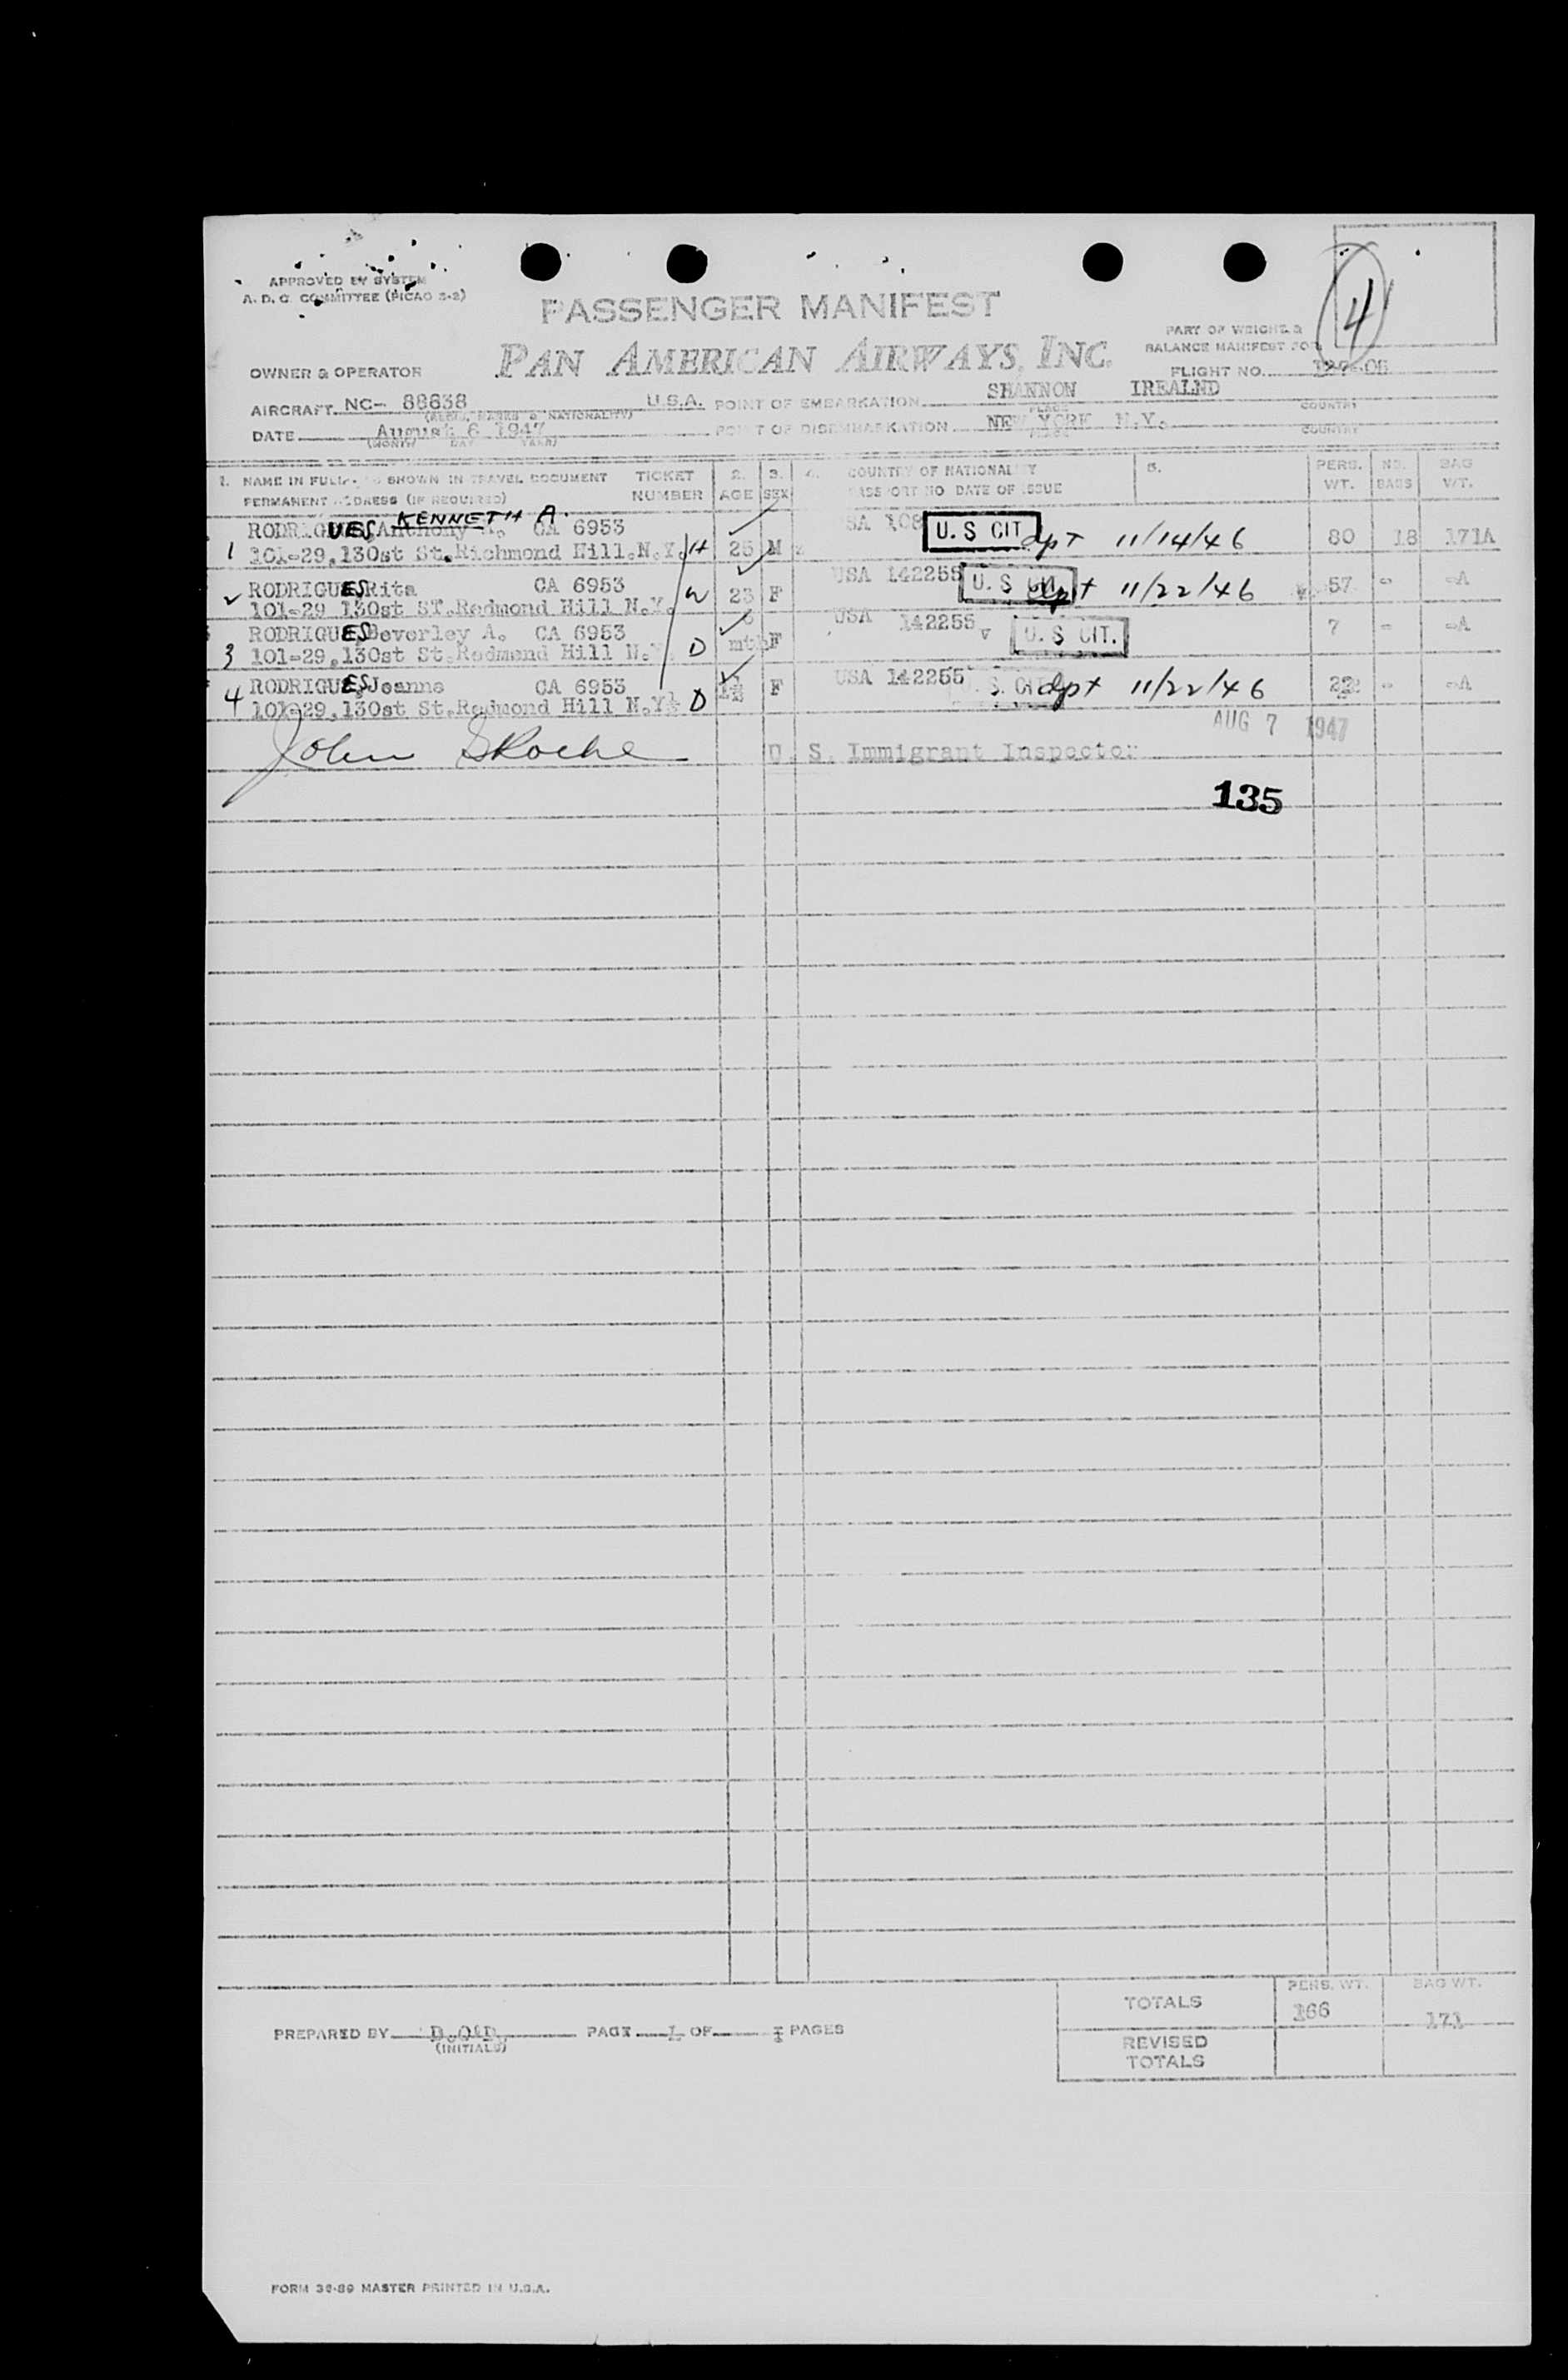 APPROVED BY SYSTEM
A. D. C. COMMITTEE (PICAO 3-2)
PASSENGER MANIFEST
4
PART OF WEIGHT &
BALANCE MANIFEST FOR
PAN AMERICAN AIRWAYS, INC.
OWNER & OPERATOR
FLIGHT NO.
AIRCRAFT NC- 88838 U.S.A. POINT OF EMBARKATION SHANNON IREALND
PLACE COUNTRY
DATE August 6 1947 POINT OF DISEMBARKATION NEW YORK N.Y.
(MONTH DAY YEAR) PLACE COUNTRY
1. NAME IN FULL AS SHOWN IN TRAVEL DOCUMENT TICKET 2. 3. 4. COUNTRY OF NATIONALITY 5. PERS. NO. BAG
PERMANENT ADDRESS (IF REQUIRED) NUMBER AGE SEX PASSPORT NO DATE OF ISSUE WT. BAGS WT.
KENNETH A.
RODRIGUES, Anthony A. CA 6953 SA 108 U. S CIT
1 101-29,130st St.Richmond Hill.N.Y. H 25 M dpt 11/14/46 80 18 171A
2 RODRIGUES Rita CA 6953 W 23 F USA 142255 U. S CIT dpt 11/22/46 57 - -A
101-29 130st ST.Redmond Hill N.Y.
RODRIGUES, Beverley A. CA 6953 USA 142255 U. S CIT. 7 - -A
3 101-29,130st St.Redmond Hill N.Y. D mth F
RODRIGUES, Joanne CA 6953 F USA 142255 U. S. CIT dpt 11/22/46 22 - -A
4 101-29,130st St.Redmond Hill N.Y. D
AUG 7 1947
John Roche U. S. Immigrant Inspector
135
TOTALS PERS. WT. BAG WT.
166 171
PREPARED BY D.O'D. PAGE 1 OF 1 PAGES
(INITIALS)
REVISED
TOTALS
FORM 36-89 MASTER PRINTED IN U.S.A.